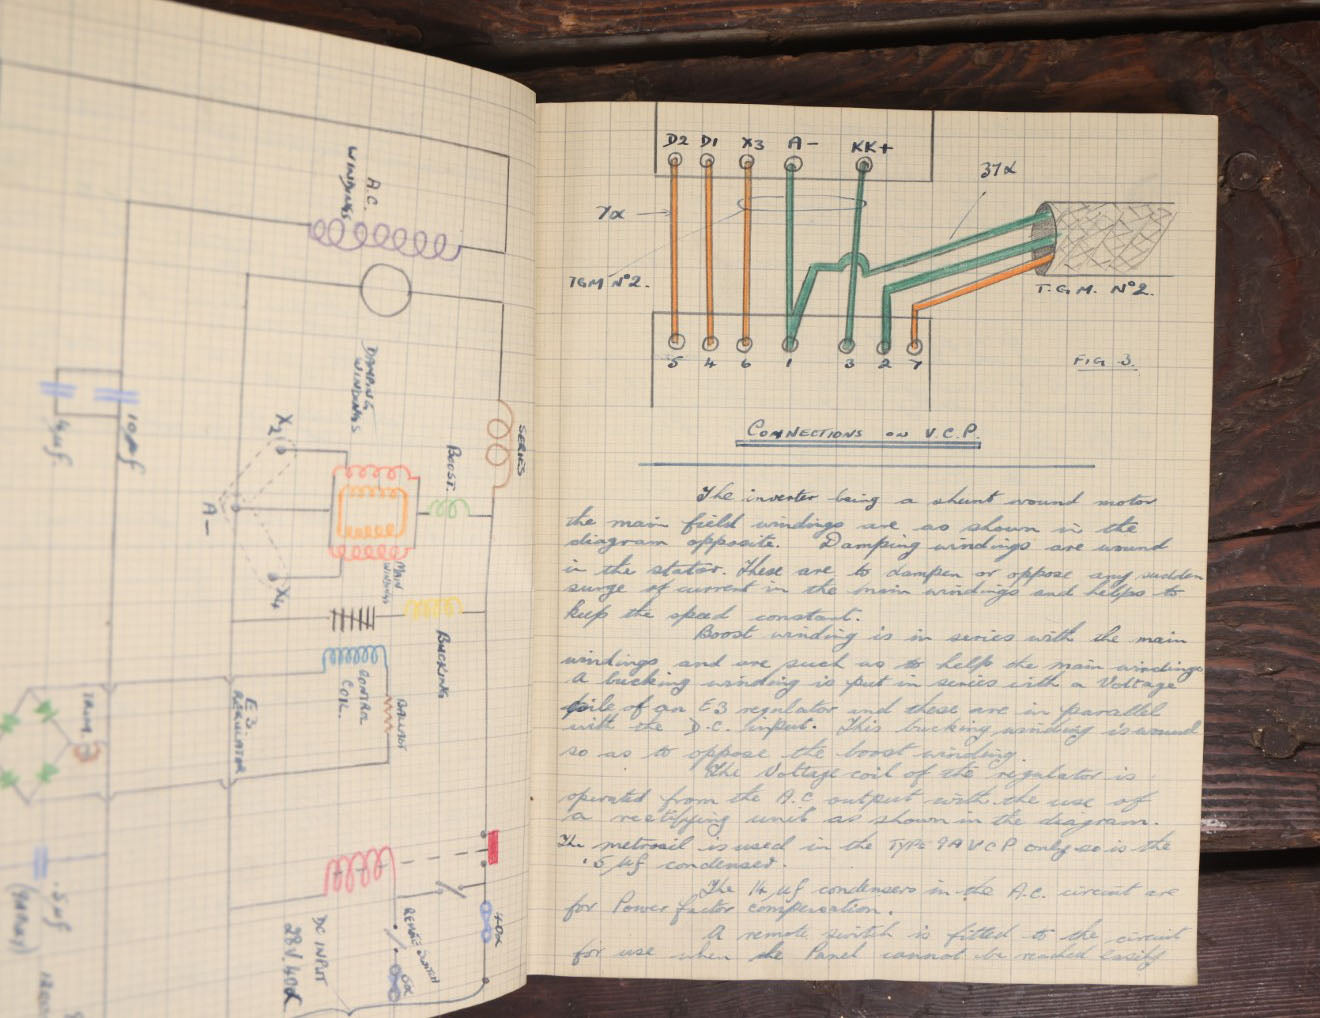 A.C.
WINDINGS
DAMPING
WINDINGS
SERIES
BOOST.
X2
A -
X4
MAIN
WINDINGS
BUCKING
10µf
4µf
CONTROL
COIL.
BALLAST
E3.
REGULATOR
TRIM.
.5µf
REMOTE SWITCH
40α
DC INPUT
28V. 40α
D2 D1 X3 A - KK+
37α
7α
TGM Nº2.
T.G.M. Nº2.
5 4 6 1 3 2 7
FIG 3.
CONNECTIONS ON V.C.P.
The inverter being a shunt wound motor
the main field windings are as shown in the
diagram opposite. Damping windings are wound
in the stator. These are to dampen or oppose any sudden
surge of current in the main windings and helps to
keep the speed constant.
Boost winding is in series with the main
windings and are such as to help the main windings
A bucking winding is put in series with a Voltage
pile of an E3 regulator and these are in parallel
with the D.C. input. This bucking winding is wound
so as to oppose the boost winding.
The Voltage coil of the regulator is
operated from the A.C output with the use of
a rectifying unit as shown in the diagram.
The metrosil is used in the TYPE 9A V C P only so is the
.5 µf condenser.
The 14 µf condensers in the A.C. circuit are
for Power factor compensation.
A remote switch is fitted to the circuit
for use when the Panel cannot be reached easily